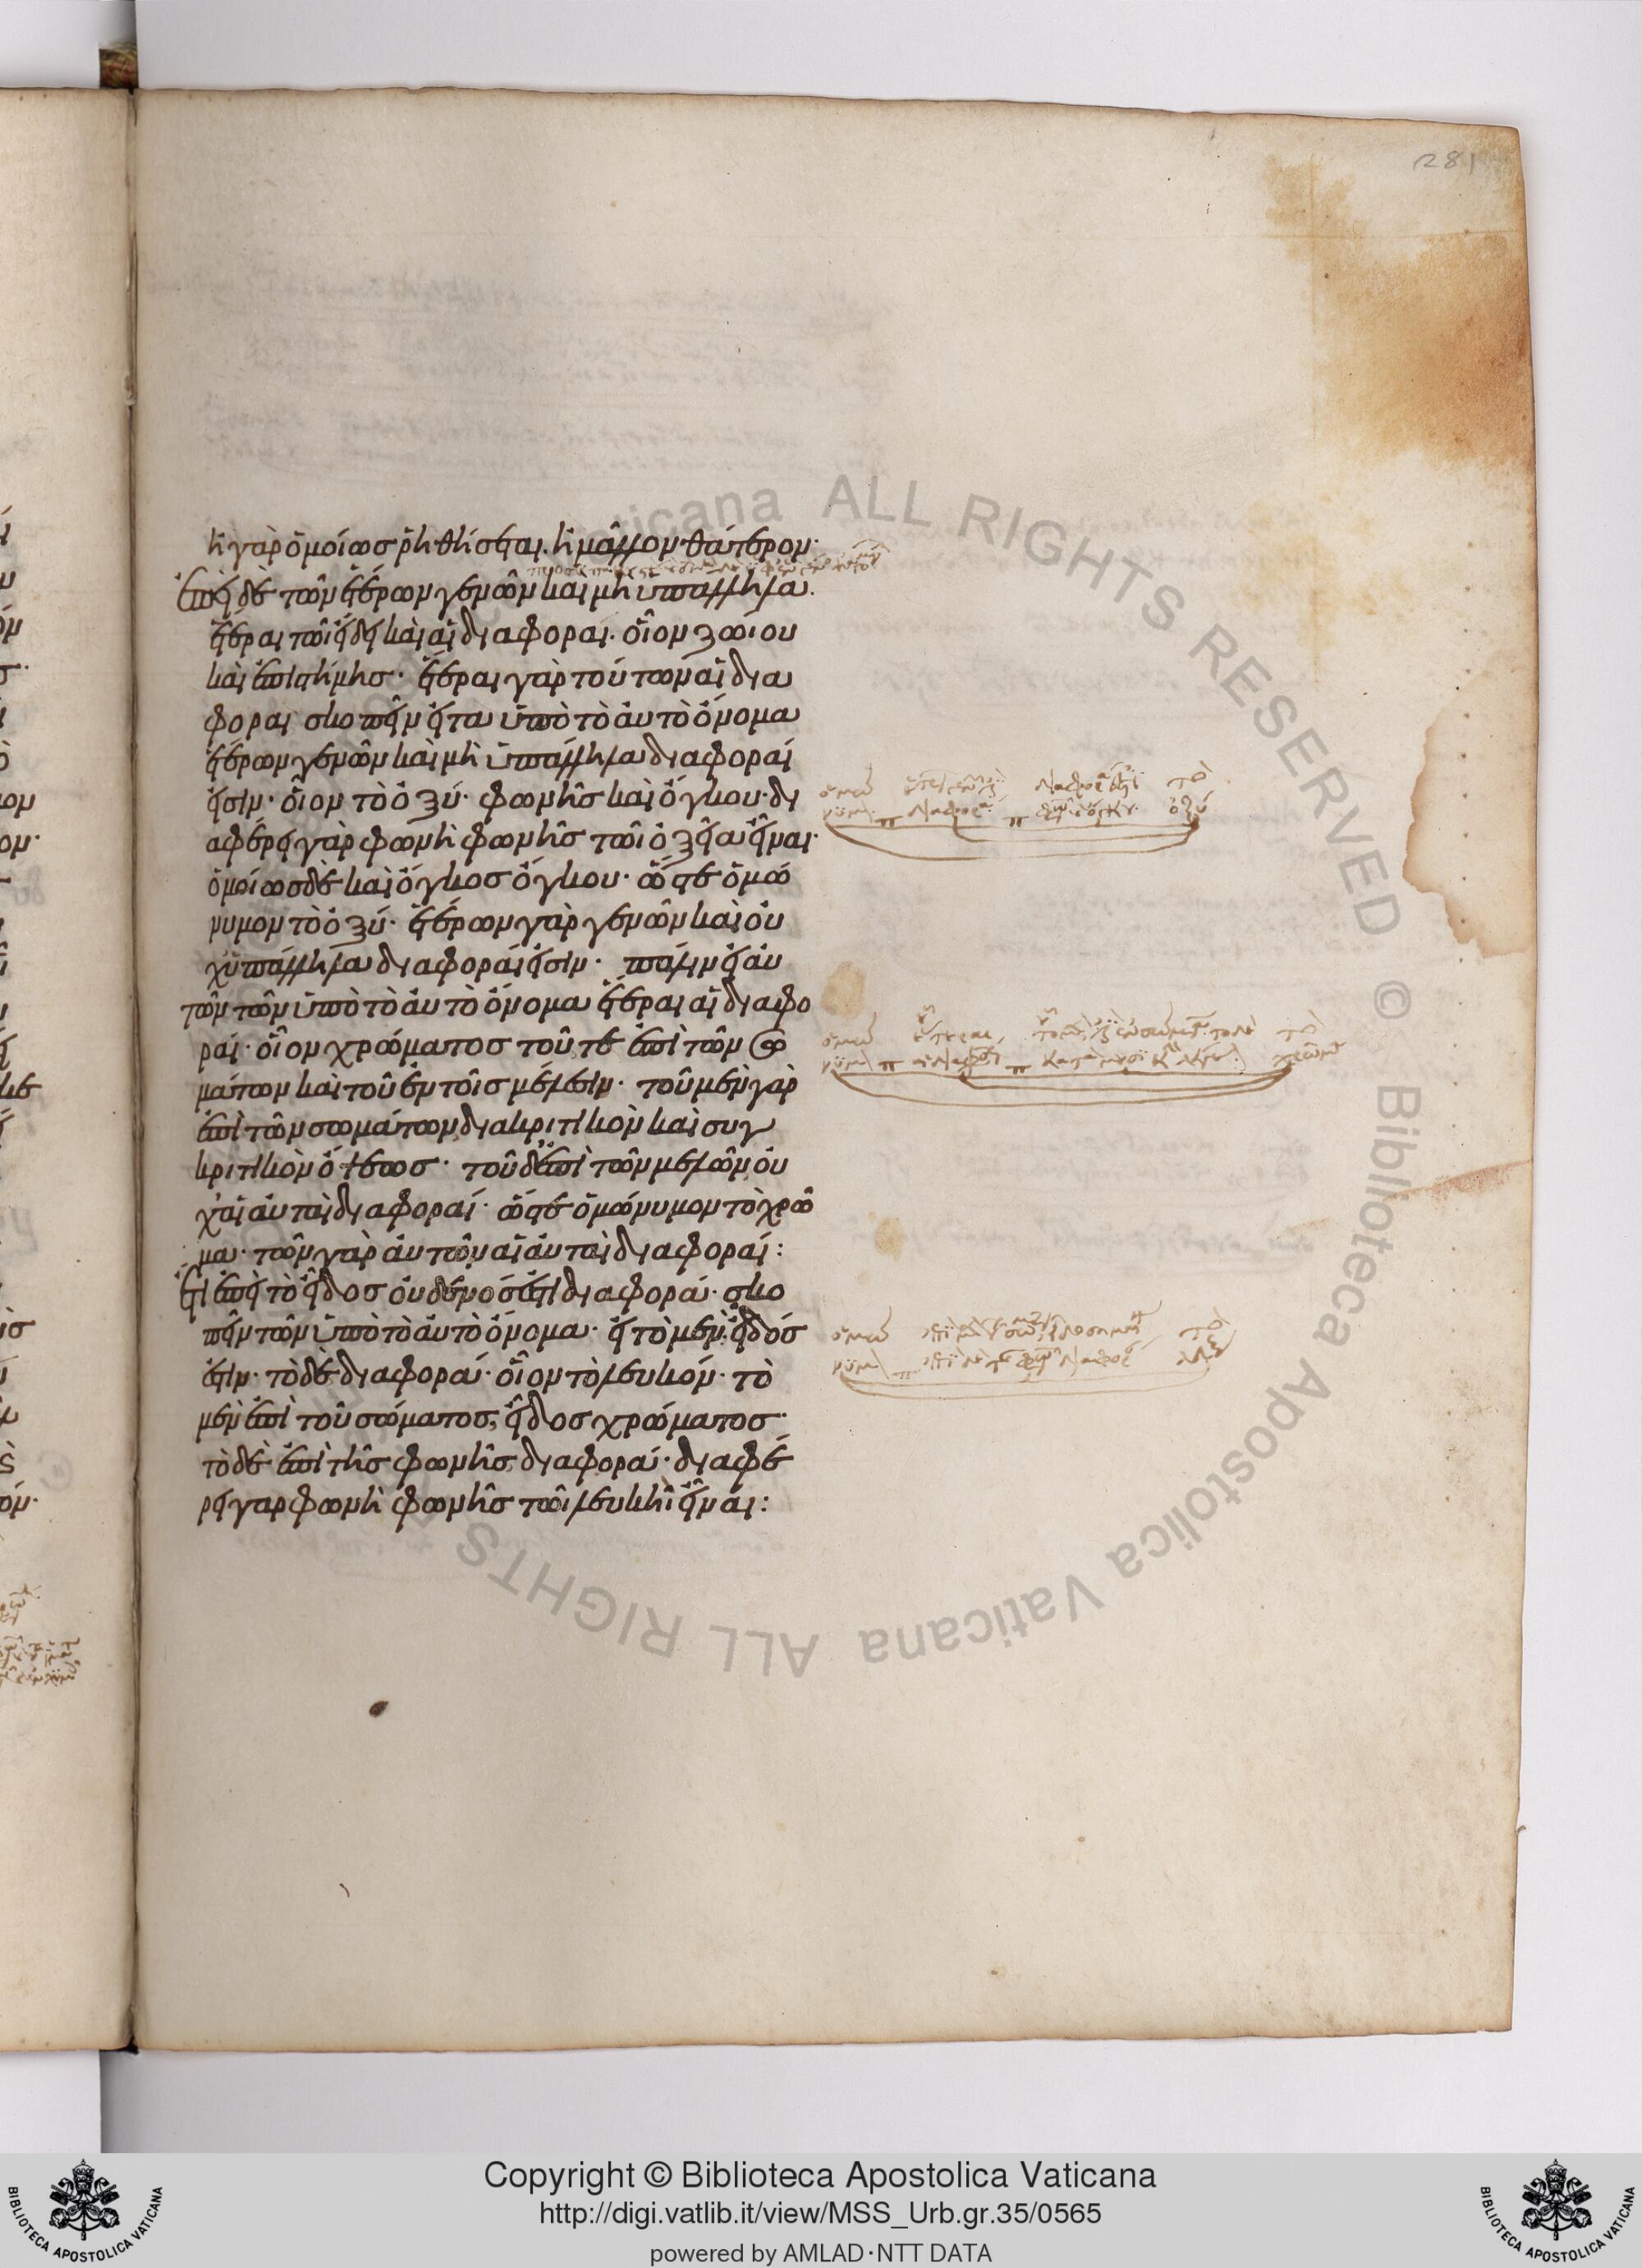 281
ἢ γὰρ ὁμοίως ῥηθήσεται. ἢ μᾶλλον θάτερον·
ἐπεὶ δὲ τῶν ἑτέρων γενῶν καὶ μὴ ὑπάλληλα.
ἕτεραι τῶι εἴδει καὶ αἱ διαφοραί. οἷον ζώιου
καὶ ἐπιστήμης· ἕτεραι γὰρ τούτων αἱ δια
φοραί σκοπεῖν εἰ τὰ ὑπὸ τὸ αὐτὸ ὄνομα
ἑτέρων γενῶν καὶ μὴ ὑπάλληλα διαφοραί
εἰσιν· οἷον τὸ ὀξύ· φωνῆς καὶ ὄγκου· δι
αφέρει γὰρ φωνὴ φωνῆς τῶι ὀξεῖα εἶναι·
ὁμοίως δὲ καὶ ὄγκος ὄγκου· ὥστε ὁμώ
νυμον τὸ ὀξύ· ἑτέρων γὰρ γενῶν καὶ οὐ
χ ὑπάλληλα διαφοραί εἰσιν· πάλιν εἰ αὐ
τῶν τῶν ὑπὸ τὸ αὐτὸ ὄνομα ἕτεραι αἱ διαφο
ραί· οἷον χρώματος τοῦ τε ἐπὶ τῶν σω
μάτων καὶ τοῦ ἐν τοῖς μέλεσιν· τοῦ μὲν γὰρ
ἐπὶ τῶν σωμάτων διακριτικὸν καὶ συγ
κριτικὸν ὄψεως· τοῦ δ' ἐπὶ τῶν μελῶν οὐ
χ αἱ αὐταὶ διαφοραί· ὥστε ὁμώνυμον τὸ χρῶ
μα· τῶν γὰρ αὐτῶν αἱ αὐταὶ διαφοραί:
ἔτι ἐπεὶ τὸ εἶδος οὐδενός ἐστι διαφορά· σκο
πεῖν τῶν ὑπὸ τὸ αὐτὸ ὄνομα· εἰ τὸ μὲν εἶδός
ἐστιν· τὸ δὲ διαφορά· οἷον τὸ λευκόν· τὸ
μὲν ἐπὶ τοῦ σώματος, εἶδος χρώματος·
τὸ δὲ ἐπὶ τῆς φωνῆς διαφορά· διαφέ
ρει γὰρ φωνὴ φωνῆς τῶι λευκὴ εἶναι:
τὸ
ὀξύ
τὸ
τὸ
Copyright © Biblioteca Apostolica Vaticana
http://digi.vatlib.it/view/MSS_Urb.gr.35/0565
powered by AMLAD·NTT DATA
BIBLIOTECA APOSTOLICA VATICANA
BIBLIOTECA APOSTOLICA VATICANA
ALL RIGHTS RESERVED © Biblioteca Apostolica Vaticana ALL RIGHTS